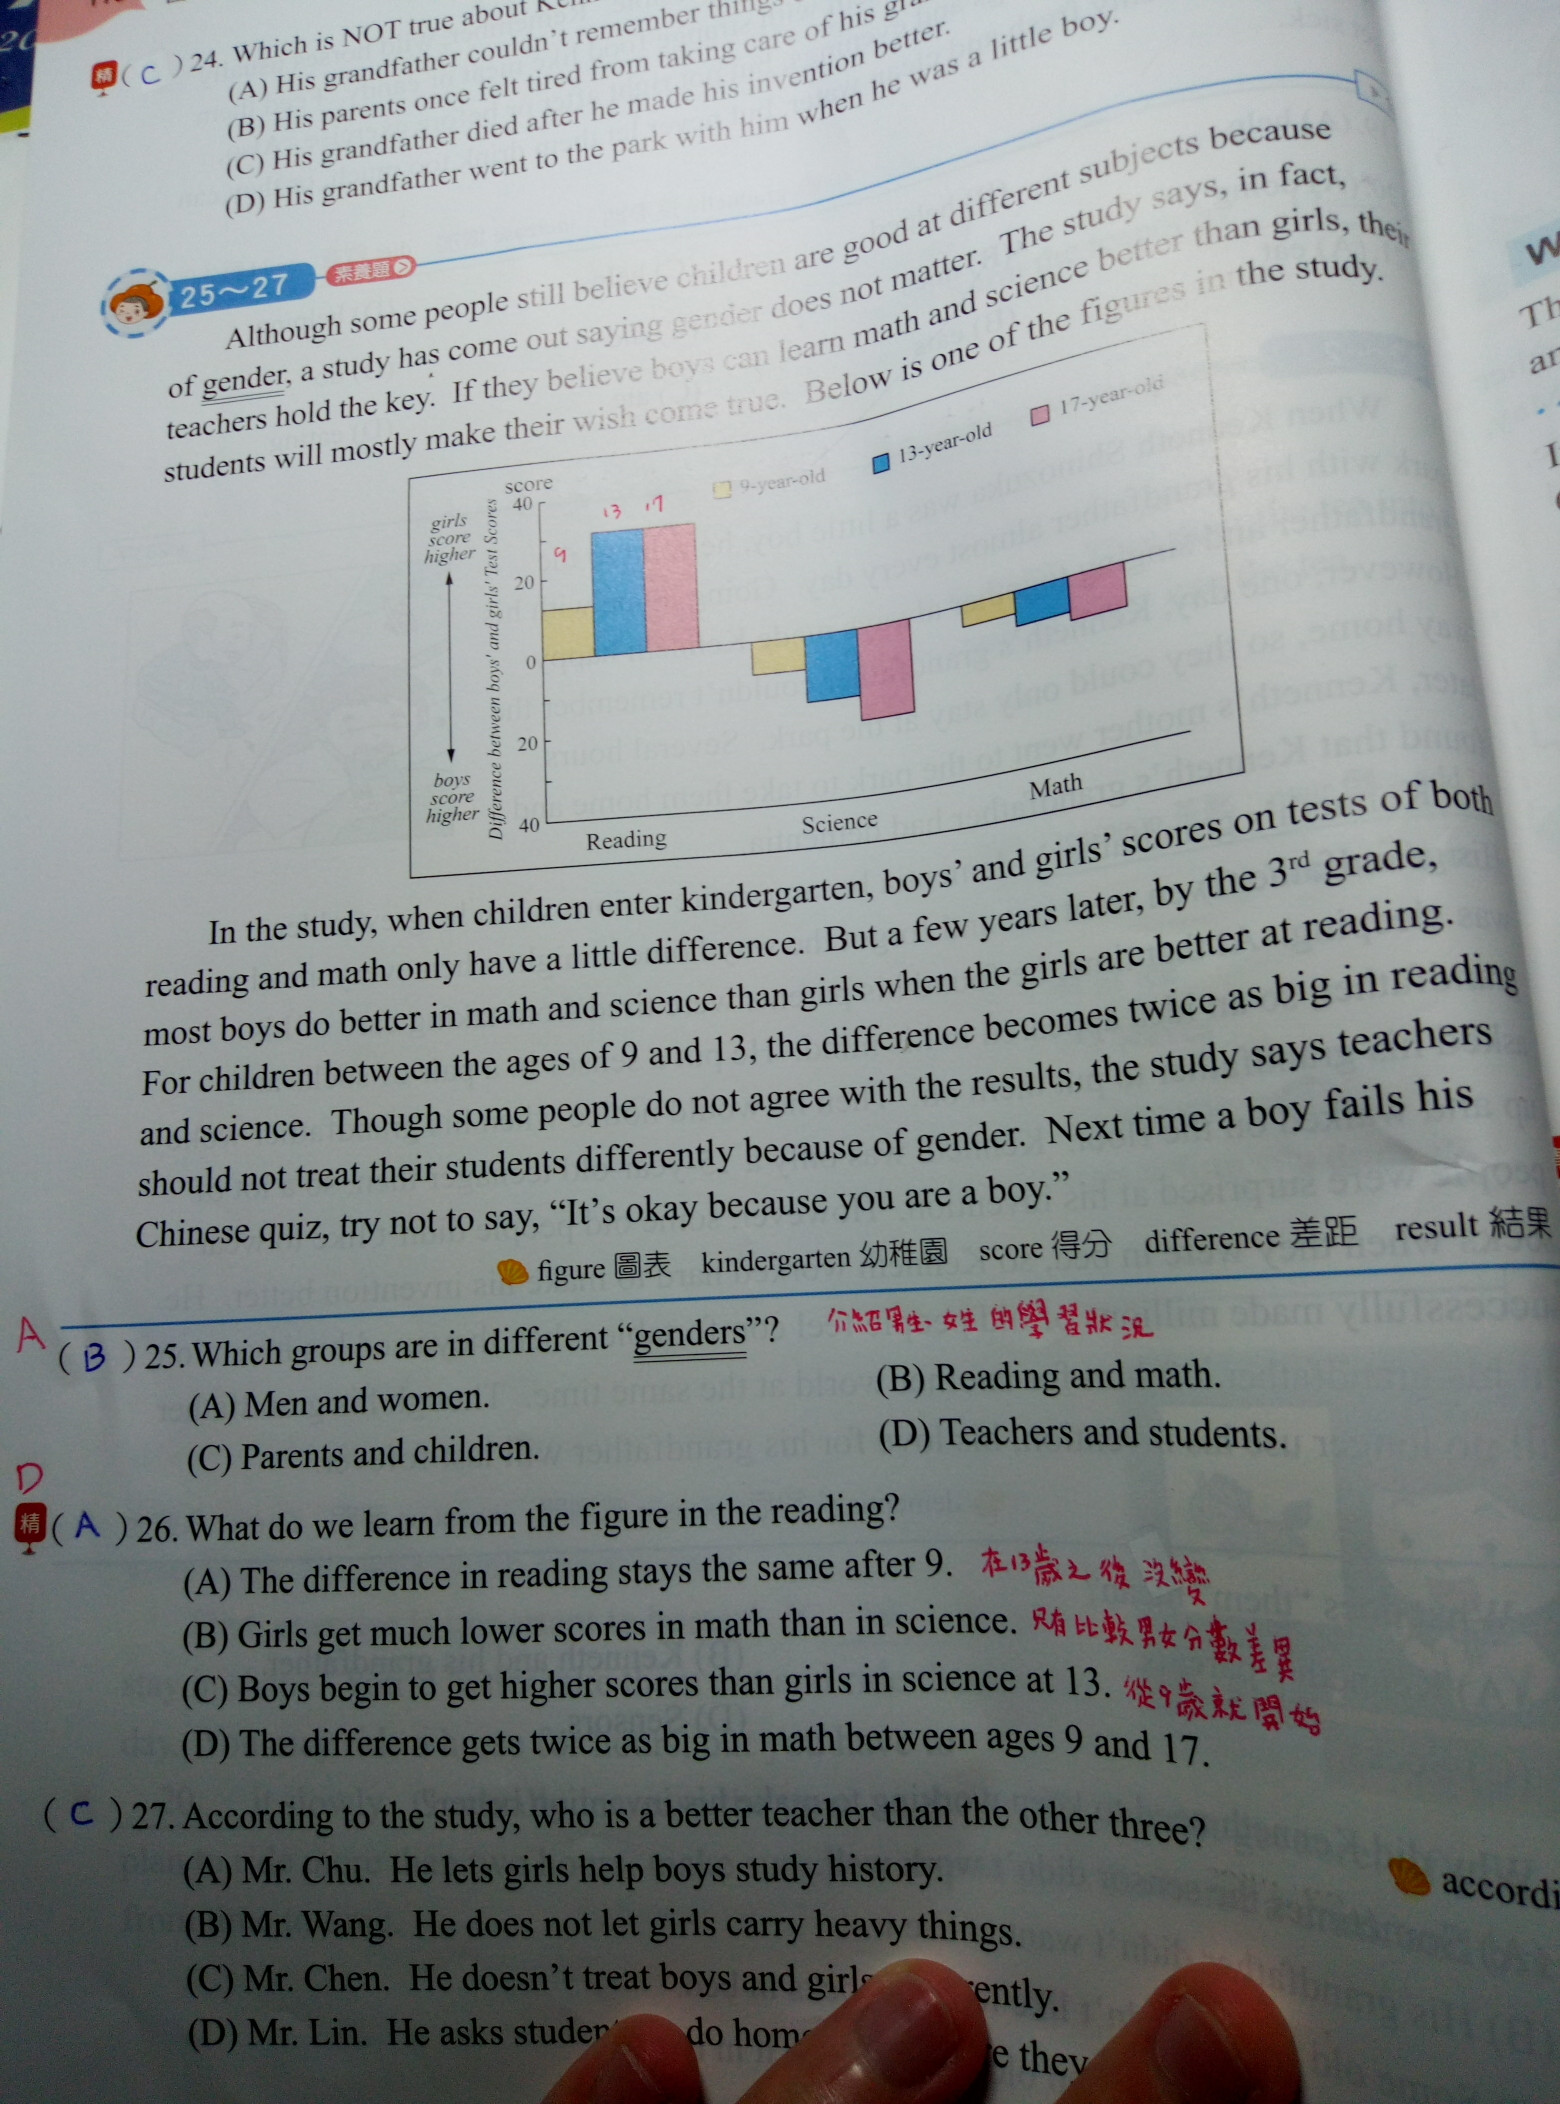 20
精 ( C ) 24. Which is NOT true about
(A) His grandfather couldn't remember things
(B) His parents once felt tired from taking care of his
(C) His grandfather died after he made his invention better.
(D) His grandfather went to the park with him when he was a little boy.
25～27 素養題
Although some people still believe children are good at different subjects because
of gender, a study has come out saying gender does not matter. The study says, in fact,
teachers hold the key. If they believe boys can learn math and science better than girls, their
students will mostly make their wish come true. Below is one of the figures in the study.
score
9-year-old 13-year-old 17-year-old
girls score higher
boys score higher
Difference between boys' and girls' Test Scores
40
20
0
20
40
9 13 17
Reading Science Math
In the study, when children enter kindergarten, boys' and girls' scores on tests of both
reading and math only have a little difference. But a few years later, by the 3rd grade,
most boys do better in math and science than girls when the girls are better at reading.
For children between the ages of 9 and 13, the difference becomes twice as big in reading
and science. Though some people do not agree with the results, the study says teachers
should not treat their students differently because of gender. Next time a boy fails his
Chinese quiz, try not to say, “It's okay because you are a boy.”
figure 圖表 kindergarten 幼稚園 score 得分 difference 差距 result 結果
A ( B ) 25. Which groups are in different “genders”? 介紹男生、女生的學習狀況
(A) Men and women. (B) Reading and math.
(C) Parents and children. (D) Teachers and students.
D
精 ( A ) 26. What do we learn from the figure in the reading?
(A) The difference in reading stays the same after 9. 在13歲之後沒變
(B) Girls get much lower scores in math than in science. 只有比較男女分數差異
(C) Boys begin to get higher scores than girls in science at 13. 從9歲就開始
(D) The difference gets twice as big in math between ages 9 and 17.
( C ) 27. According to the study, who is a better teacher than the other three?
(A) Mr. Chu. He lets girls help boys study history.
(B) Mr. Wang. He does not let girls carry heavy things.
(C) Mr. Chen. He doesn't treat boys and girls
(D) Mr. Lin. He asks do they